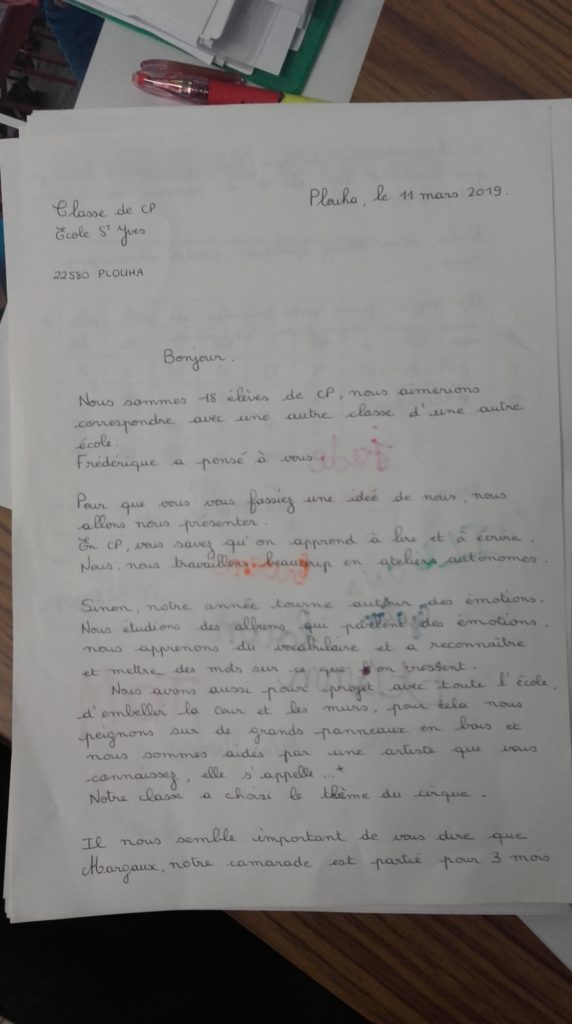 Plouha, le 11 mars 2019.
Classe de CP
Ecole St Yves
22580 PLOUHA
Bonjour.
Nous sommes 18 élèves de CP, nous aimerions
correspondre avec une autre classe d'une autre
école.
Frédérique a pensé à vous.
Pour que vous vous fassiez une ideé de nous, nous
allons nous présenter.
En CP, vous savez qu'on apprend à lire et à écrire.
Nous, nous travaillons beaucoup en ateliers autonomes.
Sinon, notre année tourne autour des émotions.
Nous étudions des albums qui parlent des émotions,
nous apprenons du vocabulaire et a reconnaître
et mettre des mots sur ce que l'on ressent.
Nous avons aussi pour projet avec toute l'école,
d'embellir la cour et les murs, pour cela nous
peignons sur de grands panneaux en bois et
nous sommes aidés par une artiste que vous
connaissez, elle s'appelle ...*
Notre classe a choisi le thème du cirque.
Il nous semble important de vous dire que
Margaux, notre camarade est partie pour 3 mois
Jade